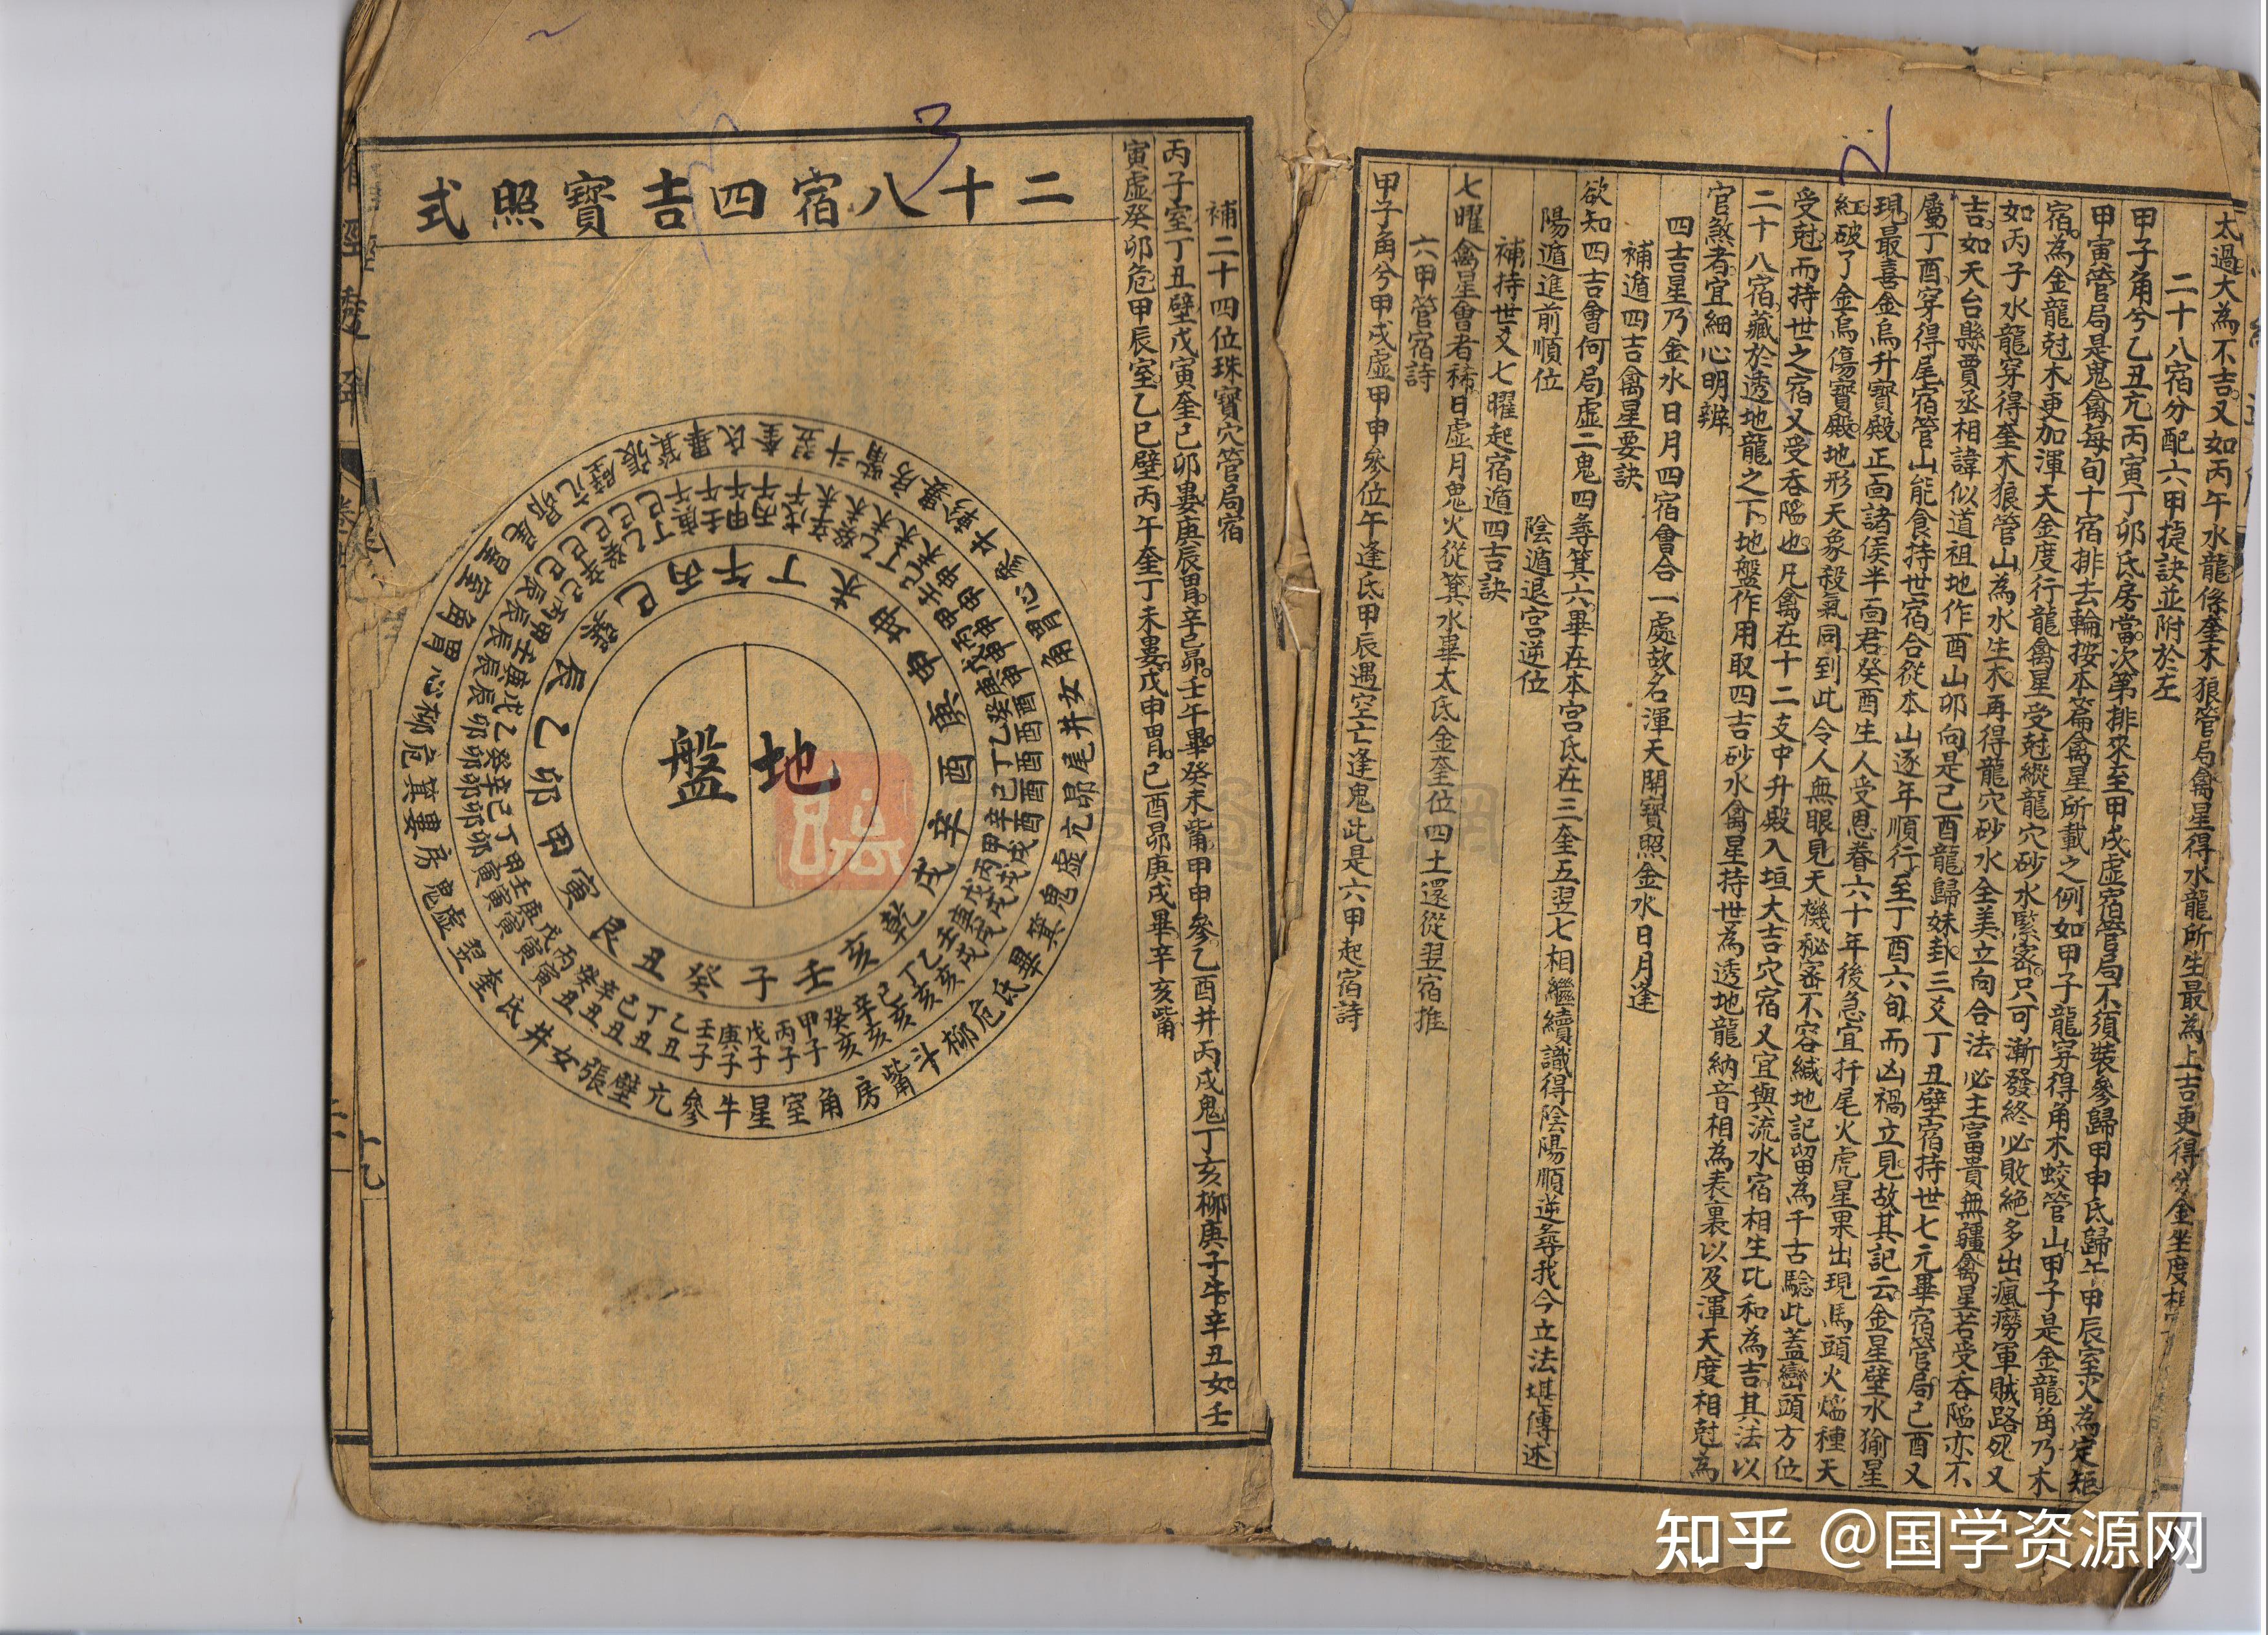 太過大為不吉又如丙午水龍條奎木狼管局禽星得水龍所生最為上吉更得分金坐度相
二十八宿分配六甲捷訣並附於左
甲子角兮乙丑亢丙寅丁卯氐房當次第排來至甲戌虛宿管局不須裝參歸甲申氐歸午甲辰室火為定矩
甲寅管局是鬼禽每旬十宿排去輪按本篇禽星所載之例如甲子龍穿得角木蛟管山甲子是金龍角乃木
宿為金龍尅木更加渾天金度行龍禽星受尅縱龍穴砂水緊密只可漸發終必敗絕多出瘋癆軍賊路死又
如丙子水龍穿得奎木狼管山為水生木再得龍穴砂水全美立向合法必主富貴無疆禽星若受吞陷亦不
吉如天台縣賈丞相諱似道祖地作酉山卯向是己酉龍歸妹卦三爻丁丑壁宿持世七元畢宿管局己酉又
屬丁酉穿得尾宿管山能食持世宿合從本山逐年順行至丁酉六旬而凶禍立見故其記云金星壁水㺄星
現最喜金烏升寶殿正面諸侯半面君癸酉生人受恩眷六十年後急宜扦尾火虎星果出現馬頭火熖種天
紅破了金烏傷寶殿地形天象殺氣同到此令人無眼見天機秘密不容緘地記留為千古驗此蓋巒頭方位
受尅而持世之宿又受吞陷也凡禽在十二支中升殿入垣大吉穴宿又宜與流水宿相生比和為吉其法以
二十八宿藏於透地龍之下地盤作用取四吉砂水禽星持世為透地龍納音相為表裏以及渾天度相尅為
官煞者宜細心明辨
四吉星乃金水日月四宿會合一處故名渾天開寶照金水日月逢
補遁四吉禽星要訣
欲知四吉會何局虛二鬼四尋箕六畢在本宮氐在三奎五翌七相繼續識得陰陽順逆尋我今立法堪傳述
陽遁進前順位 陰遁退宮逆位
補持世爻七曜起宿遁四吉訣
七曜禽星會者稀日虛月鬼火從箕水畢太氐金奎位四土還從翌宿推
六甲管宿詩
甲子角兮甲戌虛甲申參位午逢氐甲辰遇空亡逢鬼此是六甲起宿詩
補二十四位珠寶穴管局宿
丙子室丁丑壁戊寅奎己卯婁庚辰胃辛巳昴壬午畢癸未觜甲申參乙酉井丙戌鬼丁亥柳庚子牛辛丑女壬
寅虛癸卯危甲辰室乙巳壁丙午奎丁未婁戊申胃己酉昴庚戌畢辛亥觜
二十八宿四吉寶照式
地盤
子癸丑艮寅甲卯乙辰巽巳丙午丁未坤申庚酉辛戌乾亥壬
甲子丙子戊子庚子壬子乙丑丁丑己丑辛丑癸丑
知乎 @国学资源网